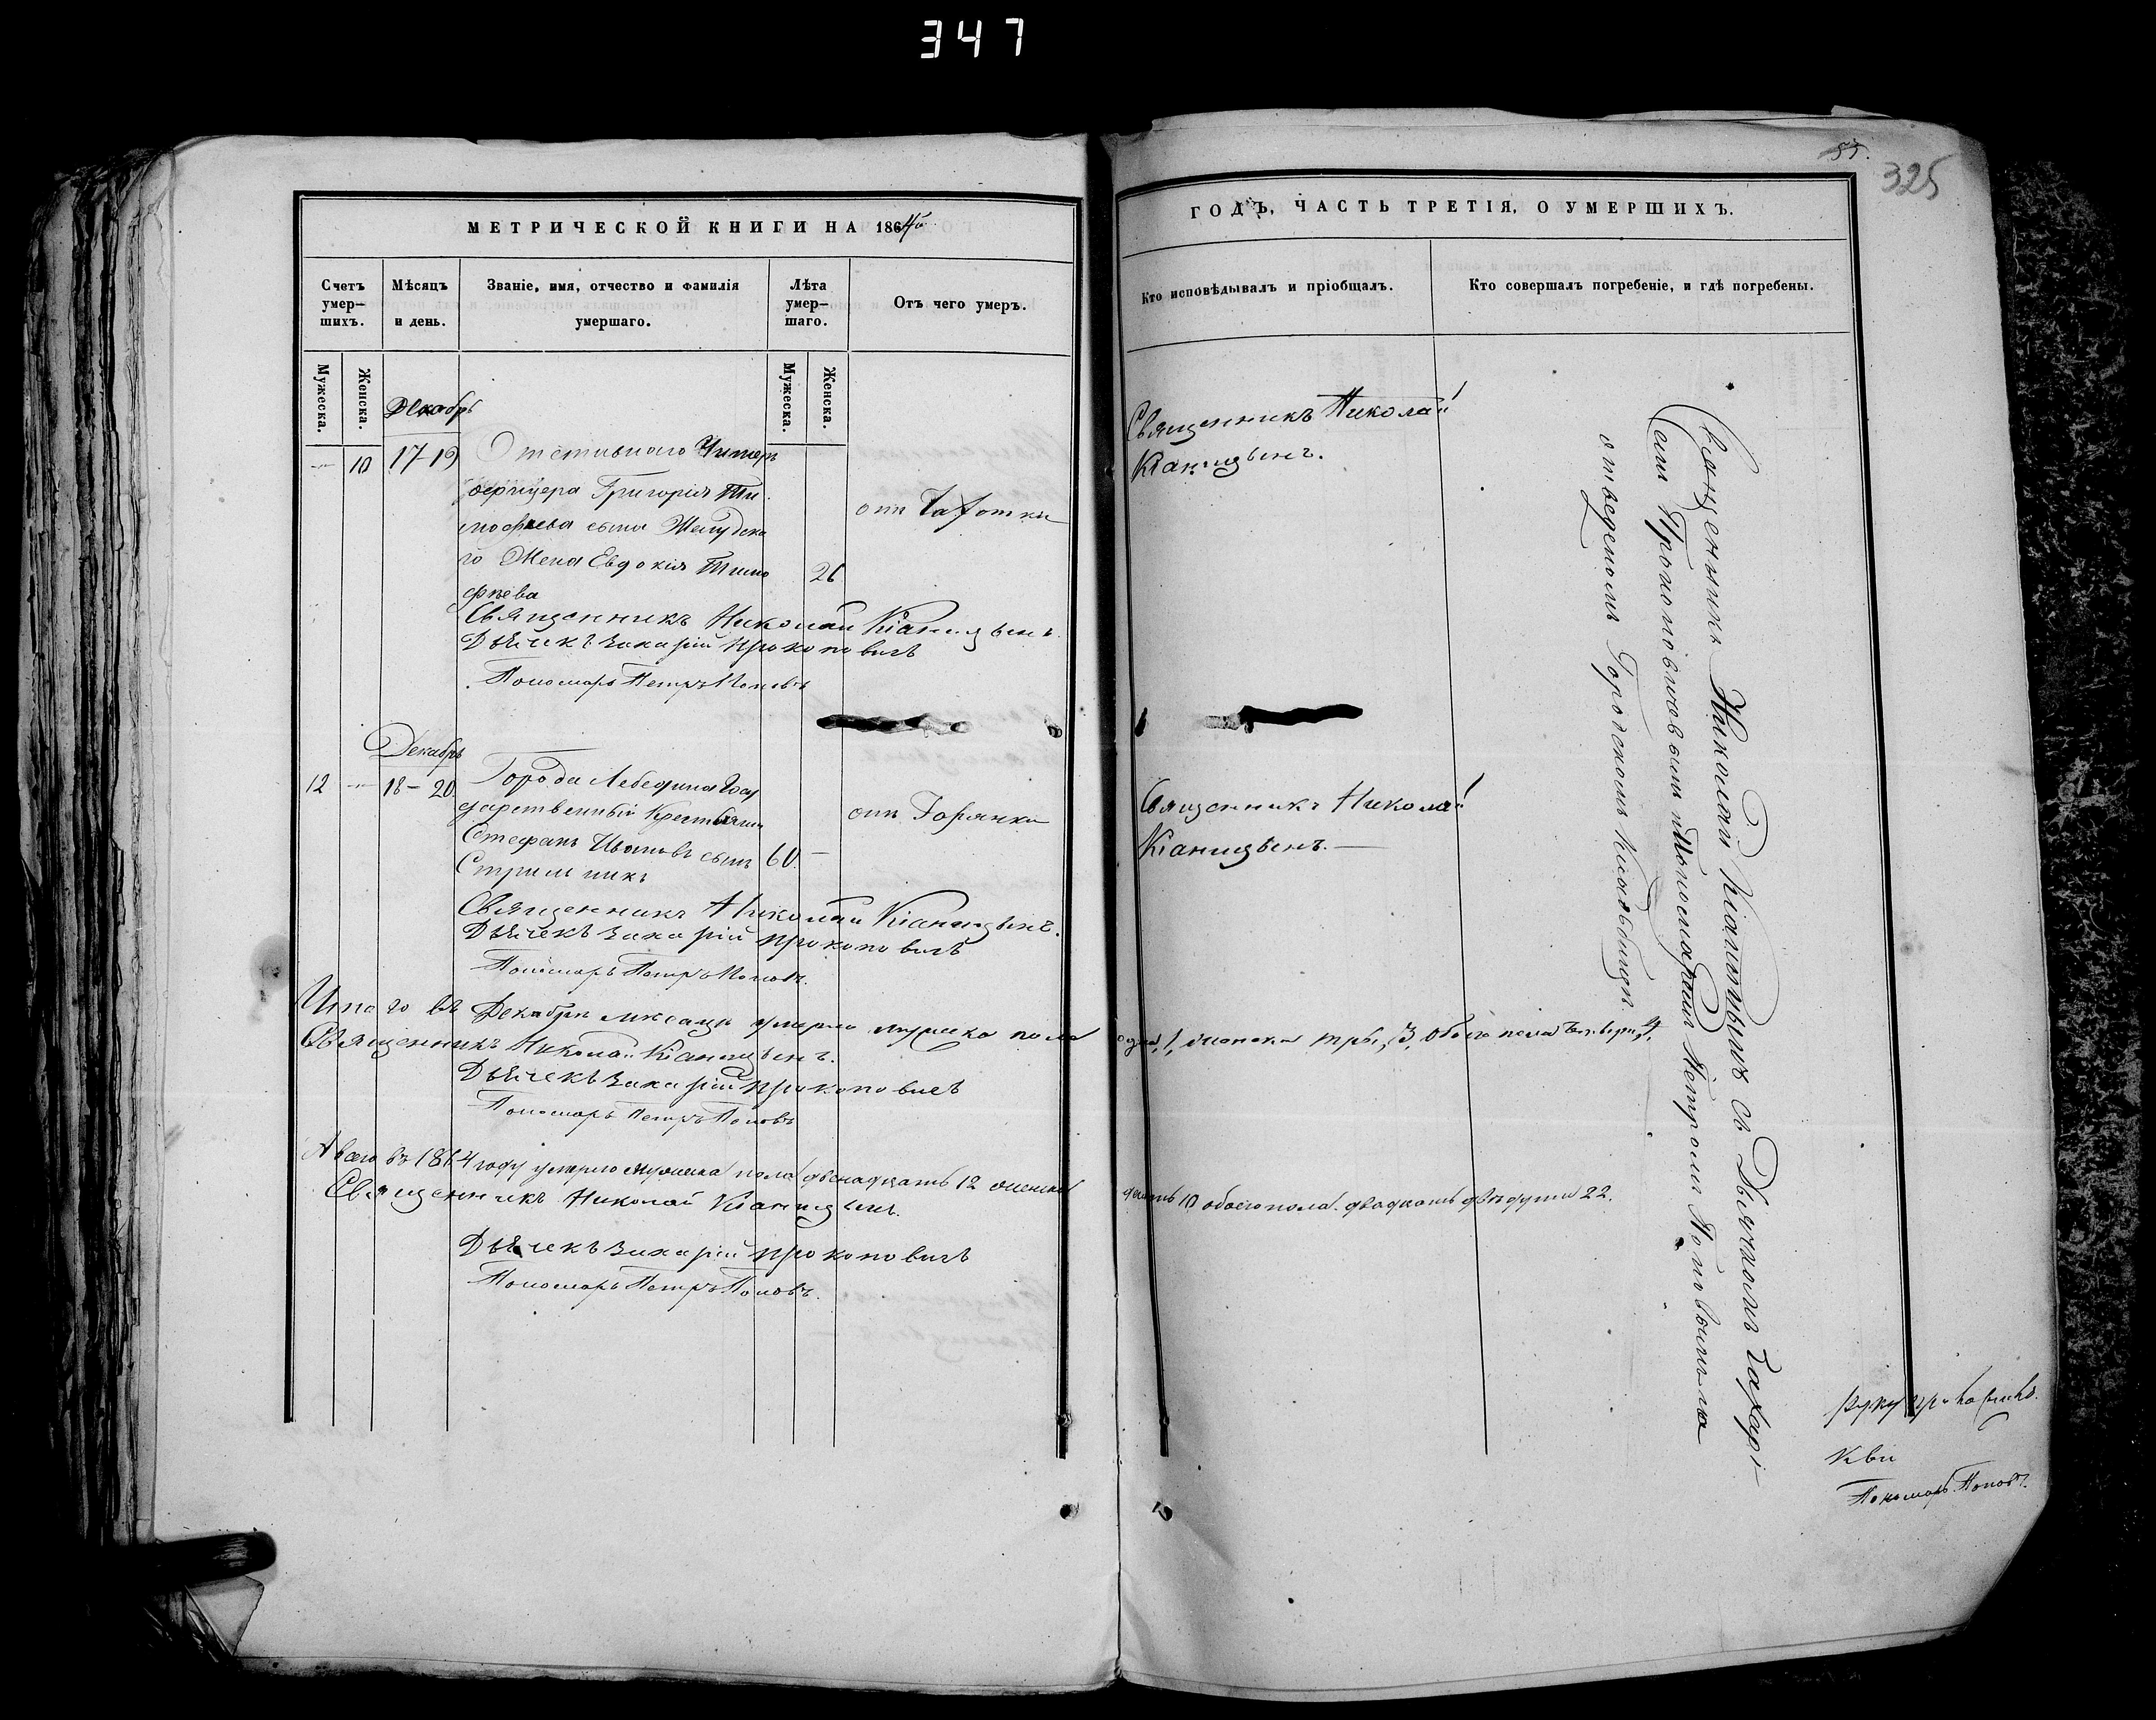 347
МЕТРИЧЕСКОЙ КНИГИ НА 1864й
Счетъ умер-шихъ.
Мѣсяцъ и день.
Званіе, имя, отчество и фамилія умершаго.
Лѣта умер-шаго.
Отъ чего умеръ.
Мужеска.
Женска.
Мужеска.
Женска.
Декабрь
10 17-19 Отставнаго Унтеръ
офицера Григорія Ти
мофѣева сына
го Жена Евдокія Тимо
фѣева
26
отъ Чахотки
Священникъ Николай
Дьячекъ Захарій Прокоповичъ
Пономарь Петръ Поповъ
Декабрь
12 18-20. Города Лебедина Госу
дарственный Крестьянин
Стефанъ Ивановъ сынъ 60.
отъ Горячки
Священникъ Николай
Дьячекъ Захарій Прокоповичъ
Пономарь Петръ Поповъ.
Итого въ Декабрѣ мѣсяцѣ умерло мужеска пола
Священникъ Николай
Дьячекъ Захарій Прокоповичъ
Пономарь Петръ Поповъ
А всего въ 1864 году умерло мужеска пола двенадцать 12 женска
Священникъ Николай
Дьячекъ Захарій Прокоповичъ
Пономарь Петръ Поповъ.
55.
325
ГОДЪ, ЧАСТЬ ТРЕТІЯ, О УМЕРШИХЪ.
Кто исповѣдывалъ и пріобщалъ.
Кто совершалъ погребеніе, и гдѣ погребены.
Священникъ Николай
Священникъ Николай
одна, 1, женска три, 3, обоего пола четверо, 4,
десять 10 обоего пола двадцать двѣ души 22.
Священникъ Николай съ Дьячкомъ Захарі-
емъ Прокоповичовымъ и Пономаремъ Петромъ Поповымъ на
отведенномъ Городскомъ Кладбищѣ.
Пономарь Поповъ.